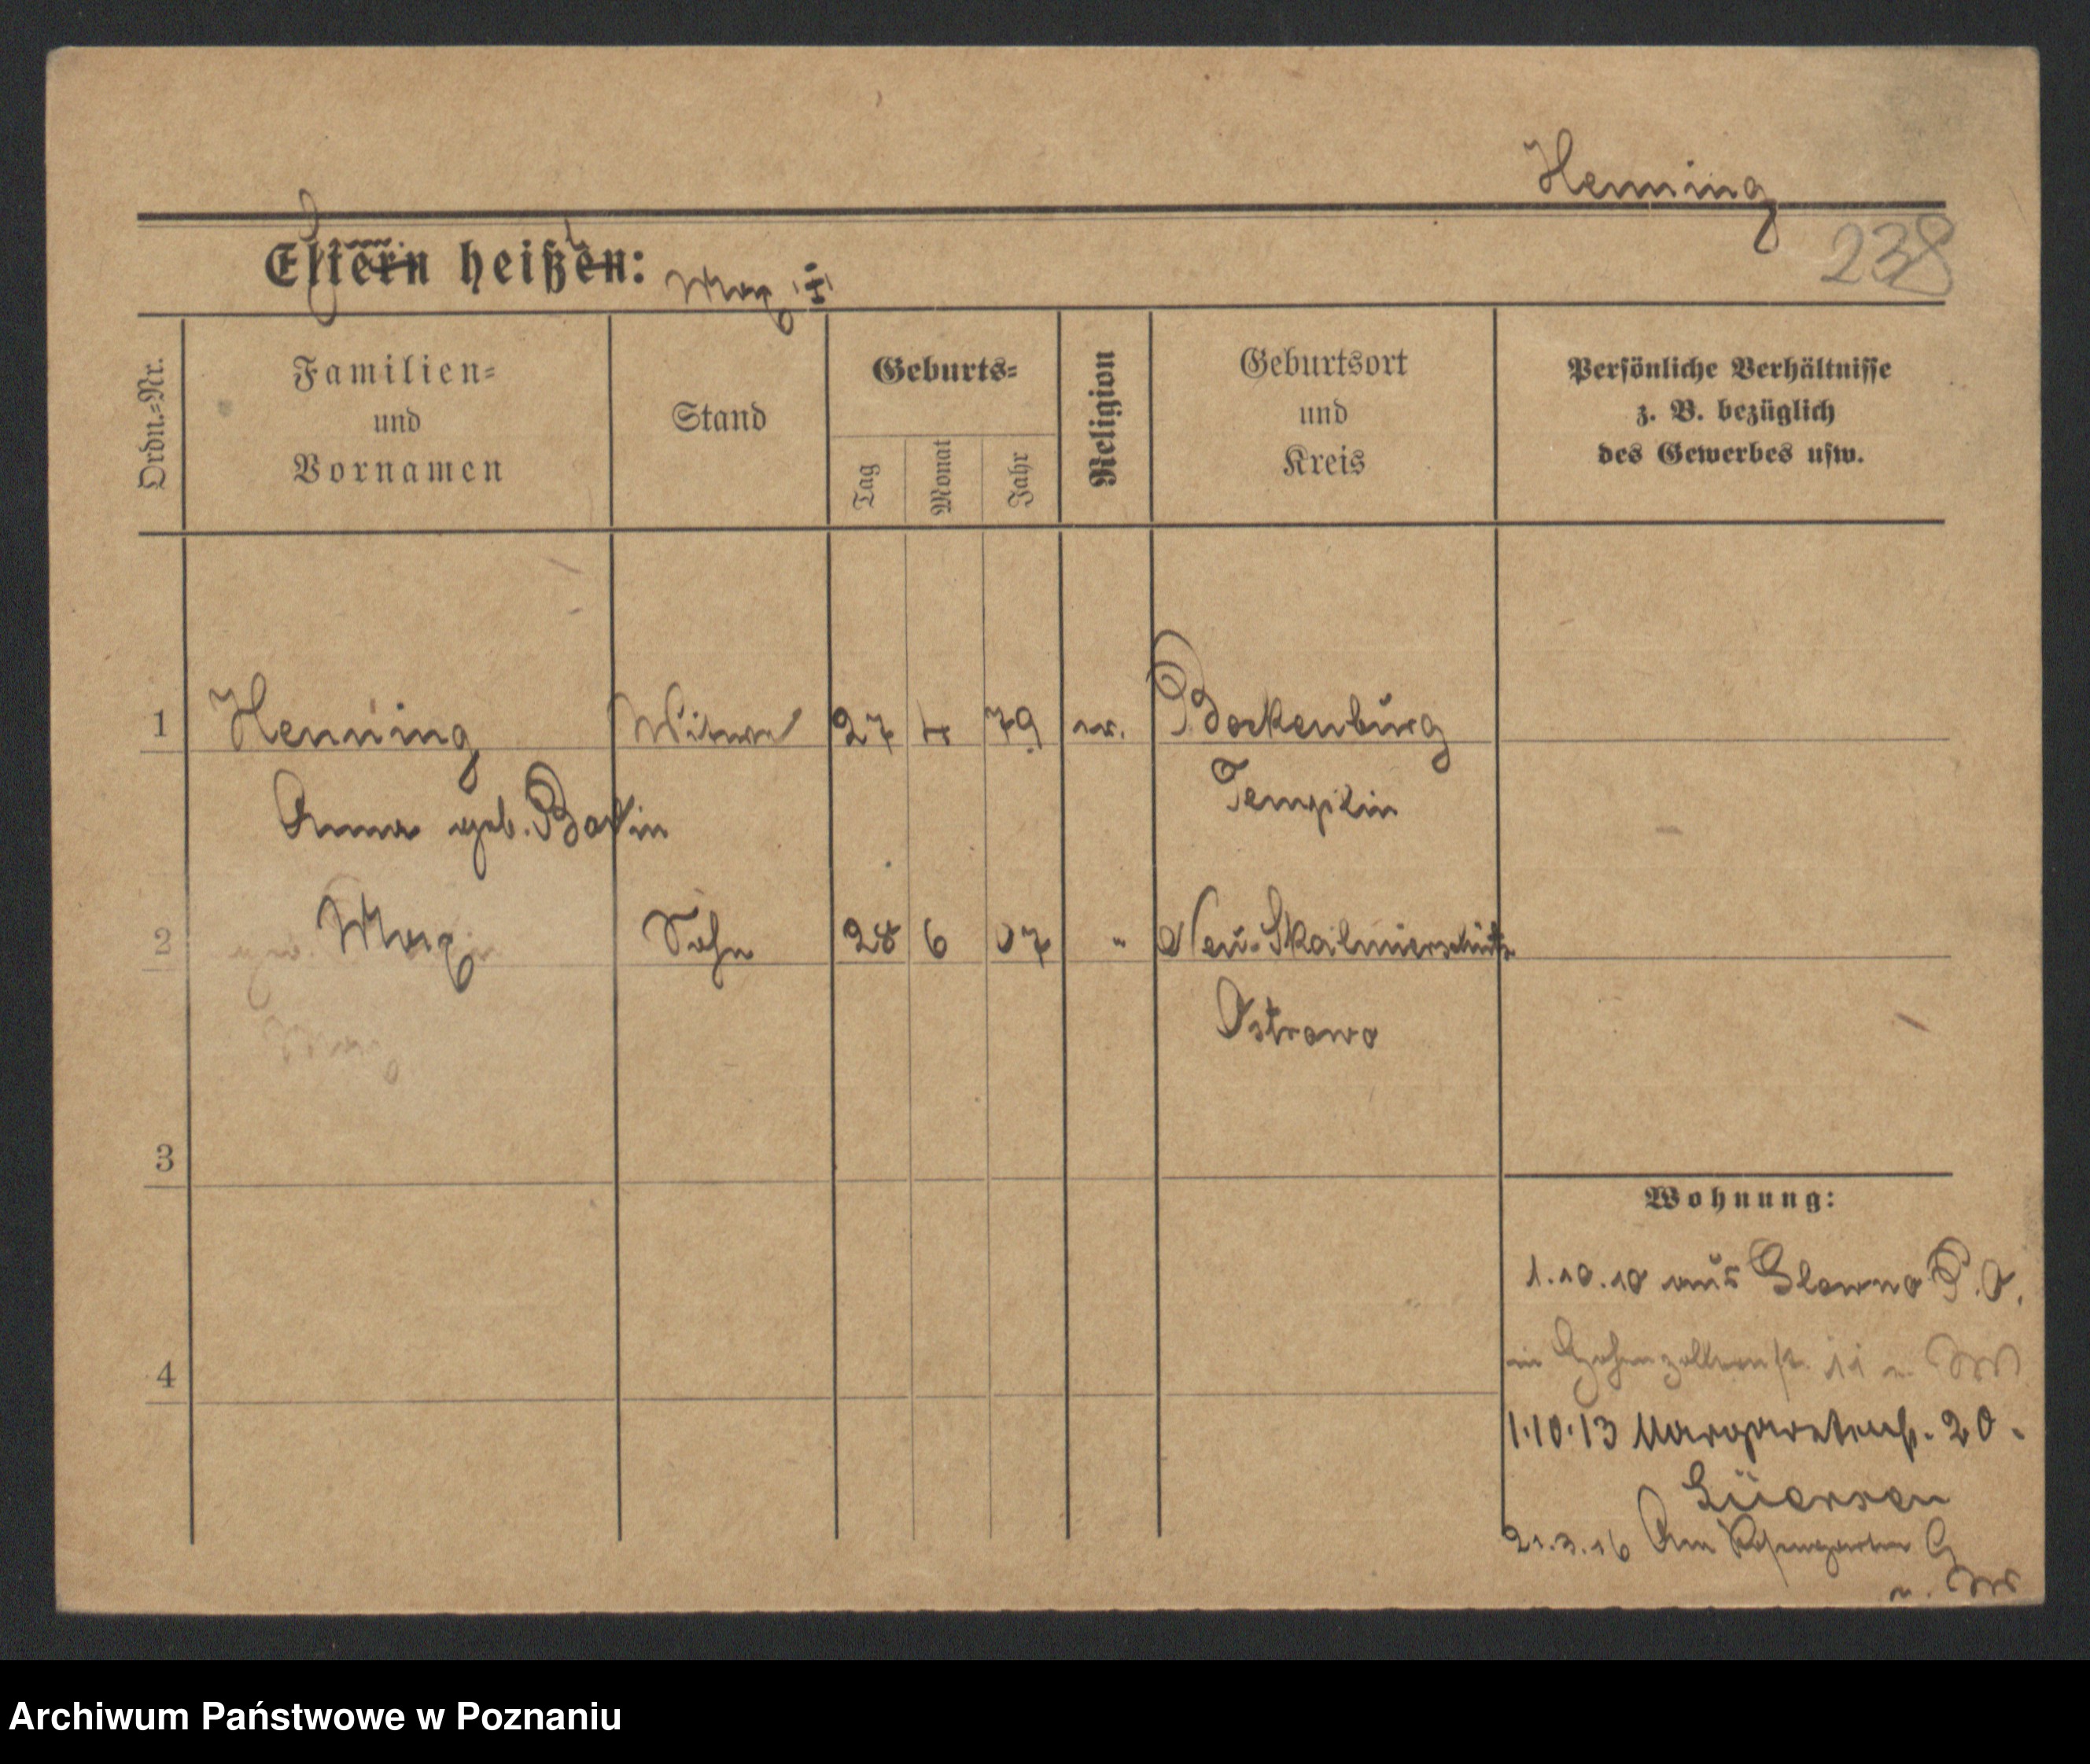 Henning
238
Eltern heißen: Max
Ordn.-Nr.
Familien-
und
Vornamen
Stand
Geburts-
Tag
Monat
Jahr
Religion
Geburtsort
und
Kreis
Persönliche Verhältnisse
z. B. bezüglich
des Gewerbes usw.
1 Henning Witwe 27 4 79 ev.
Templin
Anna geb.
2 Max Sohn 28 6 07 " Neu-Skalmierschütz
Ostrowo
3
Wohnung:
1.10.10 aus Glowno P. O.
4
in Hohenzollernstr. 11
1.10.13 Margaretenstr. 20.
21.3.16 Am Rosengarten
Archiwum Państwowe w Poznaniu